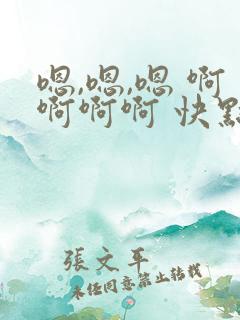 嗯,嗯,嗯 啊
啊啊啊 快點
張文平
未經同意禁止轉載